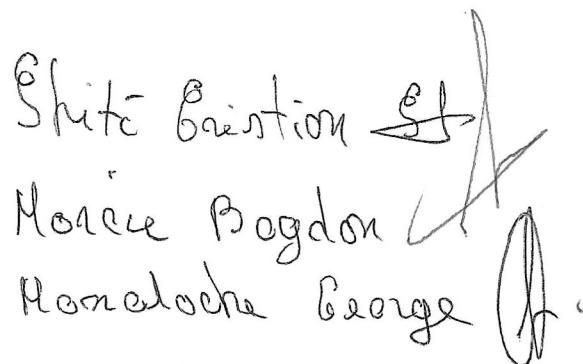 Ghită Cristian
Bogdan
Manolache George